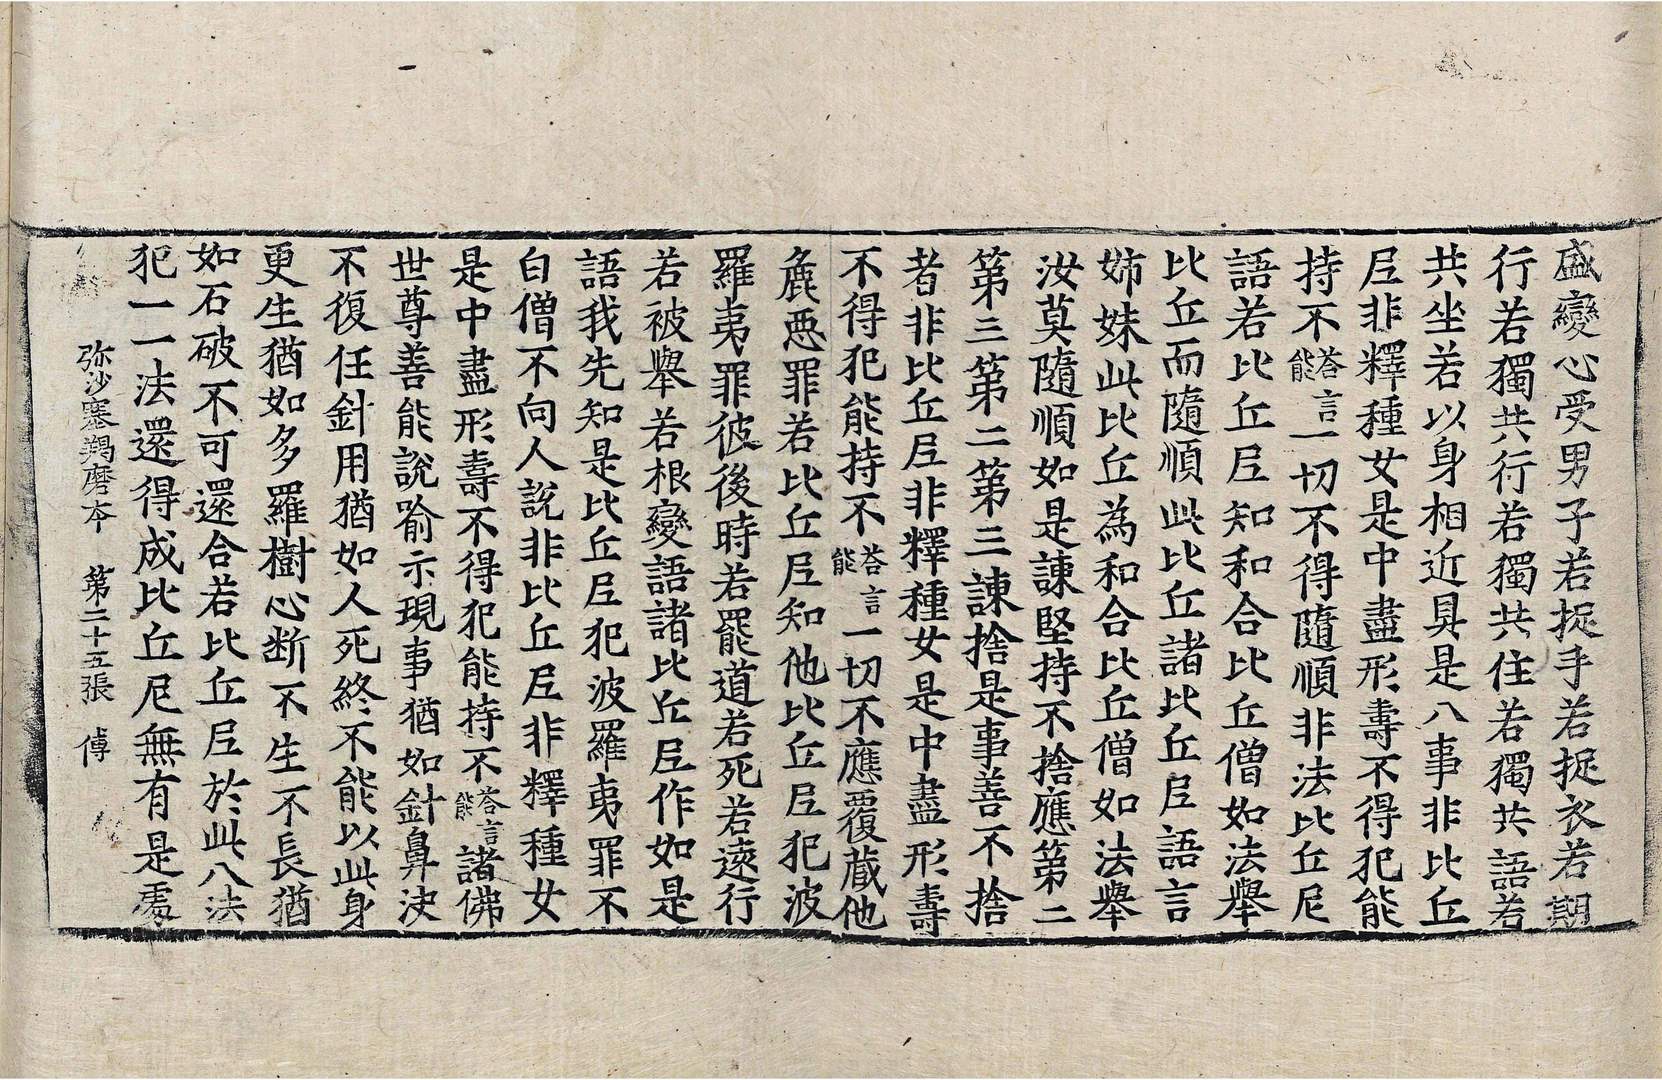 盛變心受男子若捉手若捉衣若期
行若獨共行若獨共住若獨共語若
共坐若以身相近具是八事非比丘
尼非釋種女是中盡形壽不得犯能
持不荅言能一切不得隨順非法比丘尼
語若比丘尼知和合比丘僧如法舉
比丘而隨順此比丘諸比丘尼語言
姊妹此比丘為和合比丘僧如法舉
汝莫隨順如是諫堅持不捨應第二
第三第二第三諫捨是事善不捨
者非比丘尼非釋種女是中盡形壽
不得犯能持不荅言能一切不應覆藏他
麁惡罪若比丘尼知他比丘尼犯波
羅夷罪彼後時若罷道若死若遠行
若被舉若根變語諸比丘尼作如是
語我先知是比丘尼犯波羅夷罪不
白僧不向人說非比丘尼非釋種女
是中盡形壽不得犯能持不荅言能諸佛
世尊善能說喻示現事猶如針鼻決
不復任針用猶如人死終不能以此身
更生猶如多羅樹心断不生不長猶
如石破不可還合若比丘尼於此八法
犯一一法還得成比丘尼無有是處
弥沙塞羯磨本 第二十五張 傅